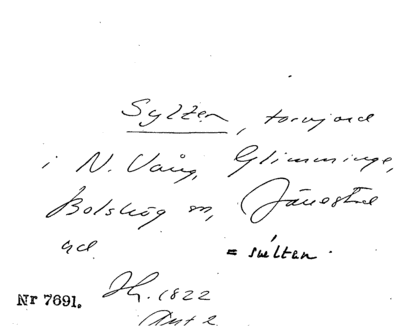 Sylten, torvjord
i N. Vång, Glimminge,
Bolshög m, Jänestad
= sulten.
Nr 7691. 1822